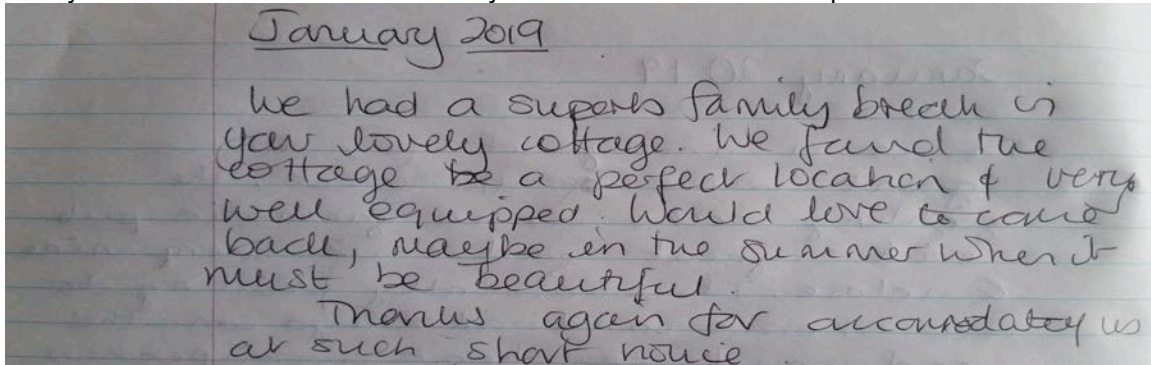 January 2019
We had a superb family break in
your lovely cottage. We found the
cottage be a perfect location & very
well equipped. Would love to come
back, maybe in the summer when it
must be beautiful.
Thanks again for accomodating us
at such short notice.